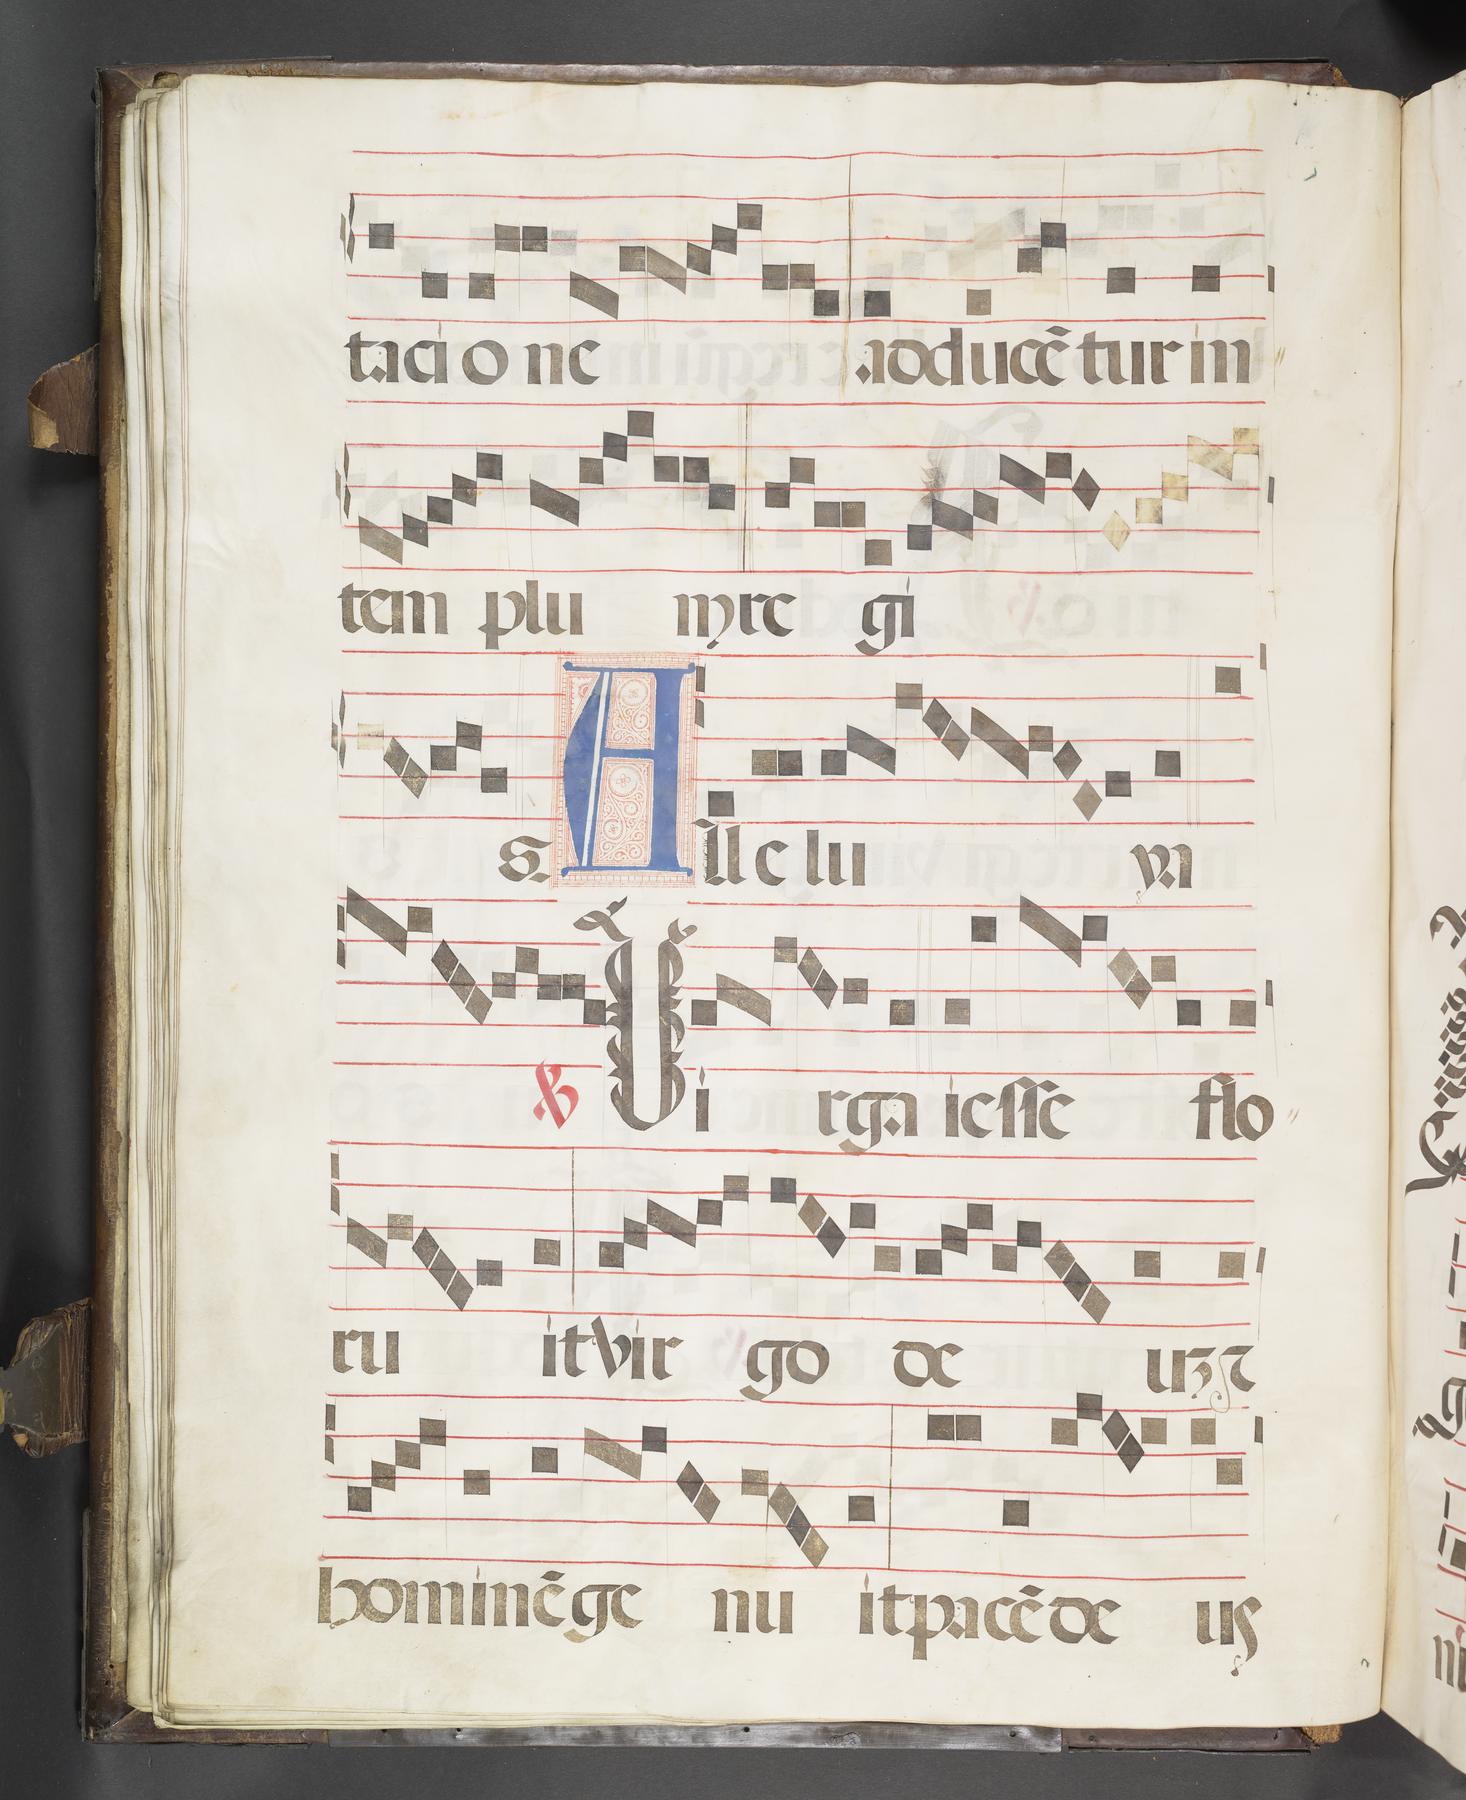 tacio ne adducẽ tur in
tem plu m re gi
s. Alle lu ya
℣ Vi rga iesse flo
ru it vir go de uʒ ⁊
hominẽ ge nu it pacẽ de us